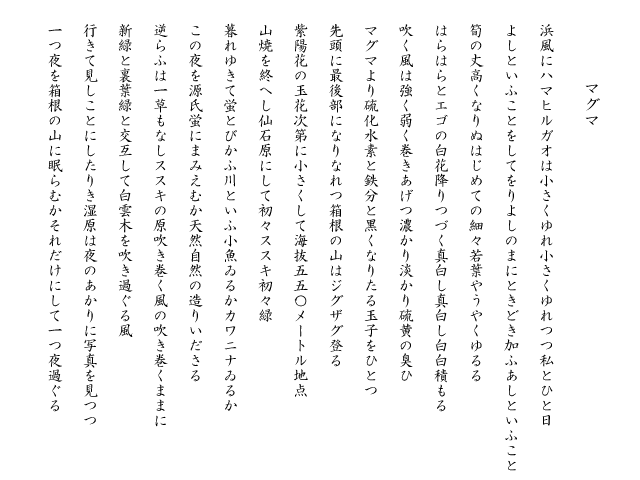 マグマ
浜風にハマヒルガオは小さくゆれ小さくゆれつつ私とひと日
よしといふことをしてをりよしのまにときどき加ふあしといふこと
筍の丈高くなりぬはじめての細々若葉やうやくゆるる
はらはらとエゴの白花降りつづく真白し真白し白白積もる
吹く風は強く弱く巻きあげつ濃かり淡かり硫黄の臭ひ
マグマより硫化水素と鉄分と黒くなりたる玉子をひとつ
先頭に最後部になりなれつ箱根の山はジグザグ登る
紫陽花の玉花次第に小さくして海抜五五〇メートル地点
山焼を終へし仙石原にして初々ススキ初々緑
暮れゆきて蛍とびかふ川といふ小魚ゐるかカワニナゐるか
この夜を源氏蛍にまみえむか天然自然の造りいださる
逆らふは一草もなしススキの原吹き巻く風の吹き巻くままに
新緑と裏葉緑と交互して白雲木を吹き過ぐる風
行きて見しことにしたりき湿原は夜のあかりに写真を見つつ
一つ夜を箱根の山に眠らむかそれだけにして一つ夜過ぐる